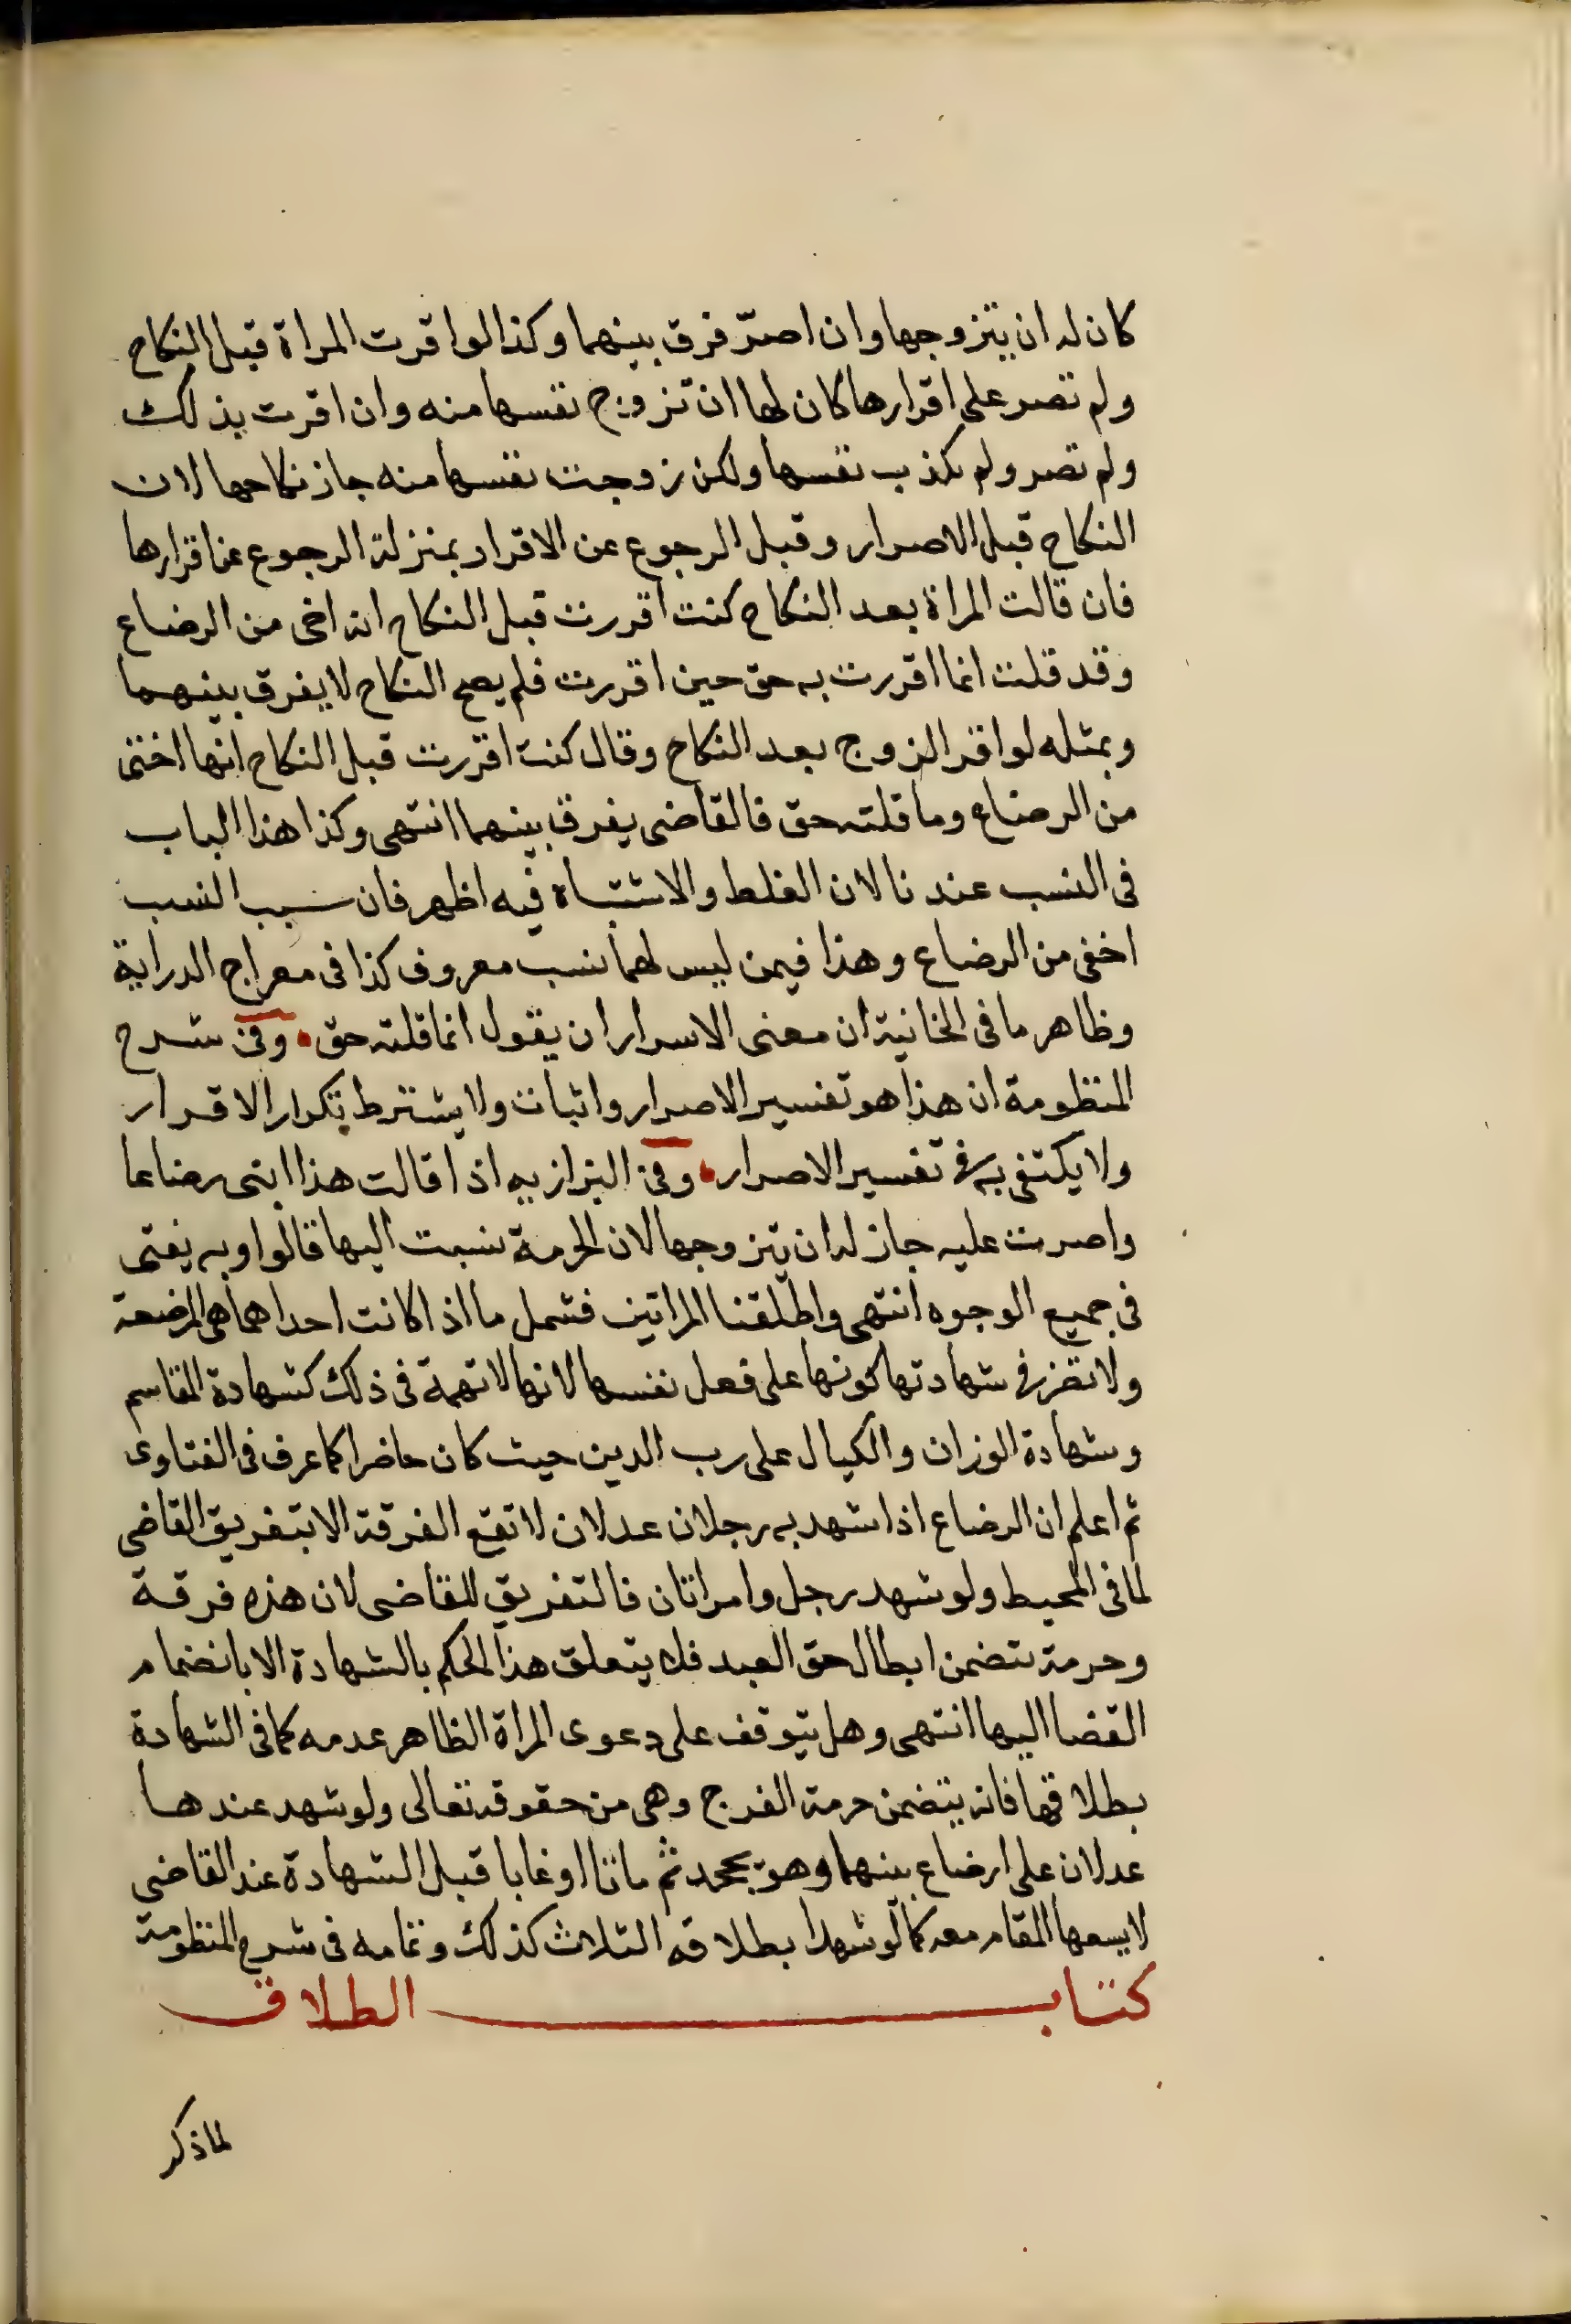 كان له ان يتزوجها وان اصرّ فرق بينهما وكذا لو اقرت المراة قبل النكاح
ولم تصر على اقرارها كان لها ان تزوج نفسها منه وان اقرت بذلك
ولم تصر ولم تكذب نفسها ولكن زوجت نفسها منه جاز نكاحها لان
النكاح قبل الاصرار وقبل الرجوع عن الاقرار بمنزلة الرجوع عن اقرارها
فان قالت المراة بعد النكاح كنت اقررت قبل النكاح انه اخى من الرضاع
وقد قلت انما اقررت به حق حين اقررت فلم يصح النكاح لا يفرق بينهما
وبمثله لو اقر الزوج بعد النكاح وقال كنت اقررت قبل النكاح انها اختى
من الرضاع وما قلته حق فالقاضى يفرق بينهما انتهى وكذا هذا الباب
فى النسب عندنا لان الغلط والاشتباه فيه اظهر فان سبب النسب
اخفى من الرضاع وهذا فيمن ليس لهما نسب معروف كذا فى معراج الدراية
وظاهر ما فى الخانية ان معنى الاسرار ان يقول انما قلته حق وفى شرح
المنظومة ان هذا هو تفسير الاصرار واثبات ولا يشترط تكرار الاقرار
ولا يكتفى به فى تفسير الاصرار وفى البزازيه اذا قالت هذا ابنى رضاعا
واصرت عليه جاز له ان يتزوجها لان الحرمة نسبت اليها قالوا وبه يفتى
فى جميع الوجوه انتهى واطلقنا المراتين فشمل ما اذا كانت احداهما هى المرضعة
ولا تضر فى شهادتها كونها على فعل نفسها لانها لا تهمة فى ذلك كشهادة القاسم
وشهادة الوزان والكيال على رب الدين حيث كان حاضرا كما عرف فى الفتاوى
ثم اعلم ان الرضاع اذا شهد به رجلان عدلان لا تقع الفرقة الا بتفريق القاضى
لما فى المحيط ولو شهد رجل وامراتان فالتفريق للقاضى لان هذه فرقة
وحرمة تتضمن ابطال حق العبد فلا يتعلق هذا الحكم بالشهادة الا بانضمام
القضا اليها انتهى وهل يتوقف على دعوى المراة الظاهر عدمه كما فى الشهادة
بطلاقها فانه يتضمن حرمة الفرج وهى من حقوقه تعالى ولو شهد عندها
عدلان على ارضاع بينهما وهو يجحد ثم ماتا او غابا قبل الشهادة عند القاضى
لا يسعها المقام معه كما لو شهدا بطلاقه الثلاث كذلك وتمامه فى شرح المنظومة
كتاب الطلاق
لما ذكر